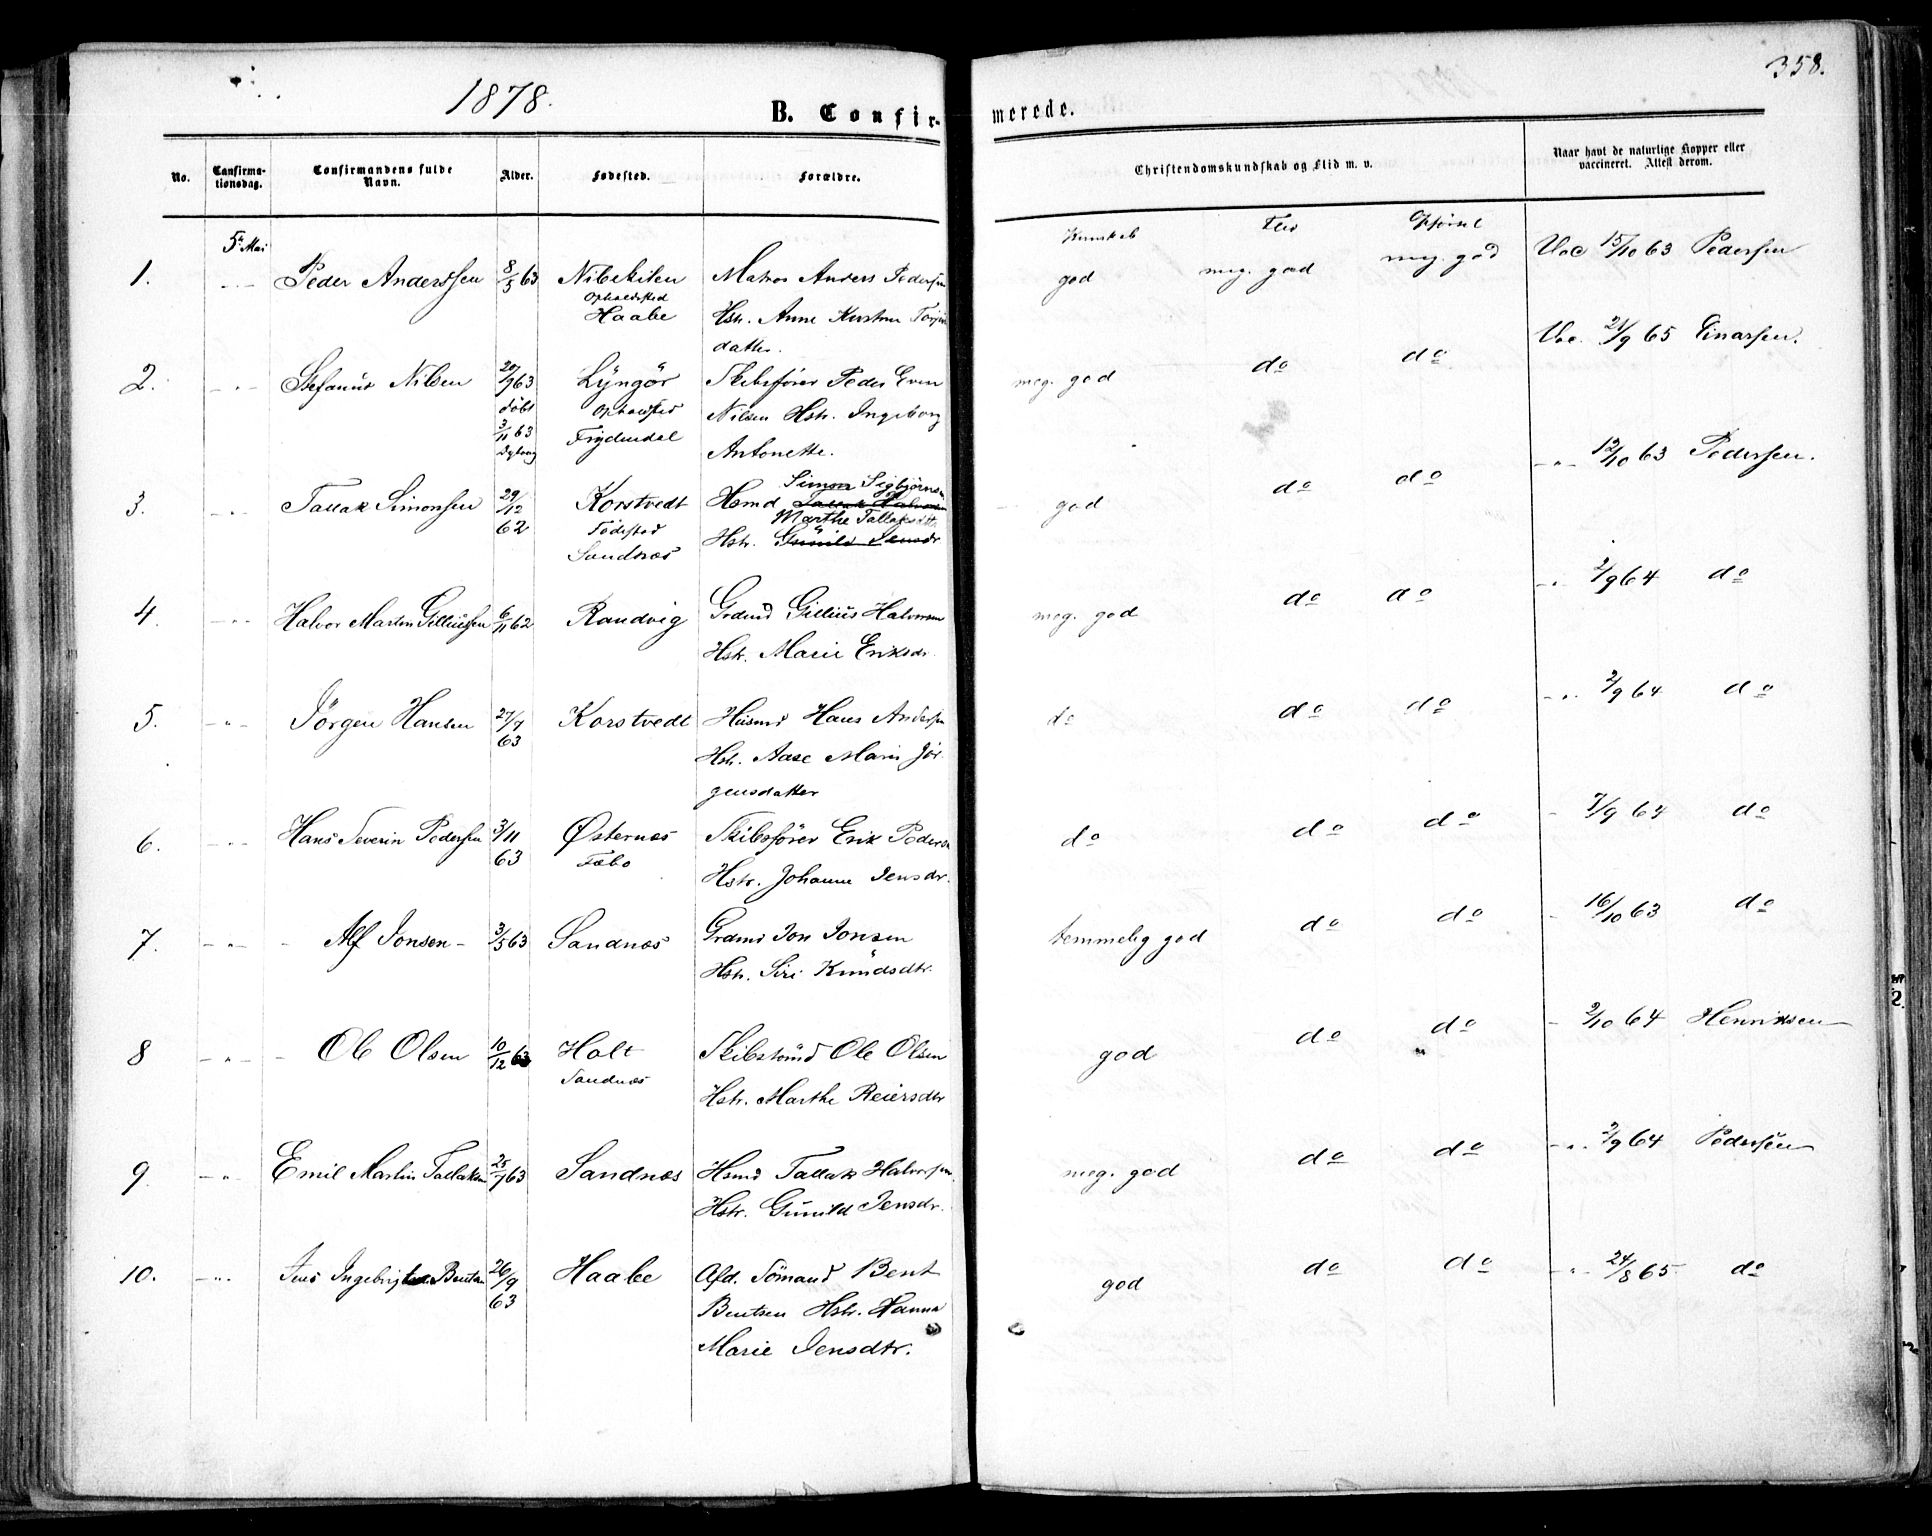 1878.
358.
B. Confir-
merede.
No.
Confirma-
tionsdag.
Confirmandens fulde
Navn.
Alder.
Fødested.
Forældre.
Christendomskundskab og Flid m. v.
Naar havt de naturlige Kopper eller
vaccineret. Attest derom.
Kunskab Flid Opførsel
5te Mai
1. - " - Peder Anderssen 8/5 63 Nibekilen Matros Anders Pedersen god meg. god meg. god Vac 15/10 63 Pedersen
Opholdsted
Haabe Hstr. Anne Kirstine
datter.
2. - " - Stefanus Nilsen 20/9 63 Lyngör Skibsfører Peder Even meg. god do do Vac. 21/9 65 Einarsen.
döbt Opholdsted Nilsen Hstr. Ingeborg
3/11 63 Frydendal Antonette.
Dybvaag
Simon Sigbjörnsen
3. - " - Tallak Simonsen 29/12 62 Korstvedt Hsmd Tallak Halvorsen god do do - " - 12/10 63 Pedersen.
Marthe Tallaksdtr.
Födested Hstr. Gunild Jensdr
Sandnæs
4. - " - Halvor Martin Gilliussen 6/11 62 Randvig Grdmd Gillius Halvorsen meg. god do do - " - 2/9 64 do
Hstr. Marie Eriksdr.
5. - " - Jörgen Hansen 27/7 63 Korstvedt Husmd Hans Andersen do do do - " - 2/9 64 do
Hstr. Aase Marie Jör-
gensdatter
6. - " - Hans Severin Pedersen 3/11 63 Østernæs Skibsfører Erik Pedersen do do do - 7/9 64 do
Hstr. Johanne Jensdr.
7. - " - Alf Jonsen - 3/5 63 Sandnæs Grdmd Jon Jonsen temmelig god do do - 16/10 63 do
Hstr. Siri Knudsdtr.
8 - " - Ole Olsen 10/12 63 Holt Skibstömd Ole Olsen god do do - 2/10 64 Henriksen
Sandnæs
Hstr. Marthe Reiersdtr
9 - " - Emil Martin Tallaksen 25/7 63 Sandnæs Hsmd Tallak Halvorsen meg. god do do - " - 2/9 64 Pedersen
Hstr. Gunild Jensdr.
10. - " - Jens Ingebrigtsen Bentsen 26/9 63 Haabe Afd. Sömand Bent god do do - " - 24/8 65 do
Bentsen Hstr. Hanna
Marie Jensdtr.